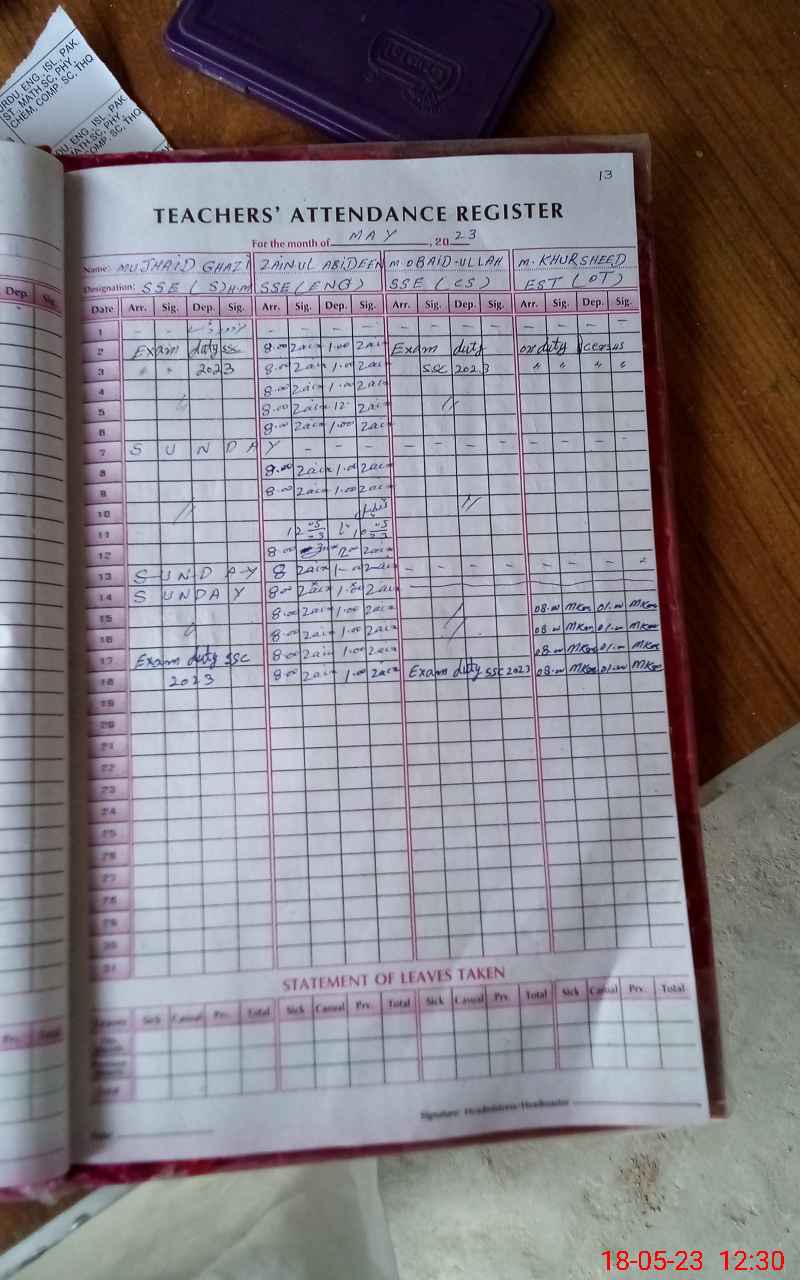 URDU, ENG, ISL, PAK.
IST, MATH SC, PHY
CHEM, COMP. SC, THQ
DU, ENG, ISL, PAK
MATH SC, PHY
COMP. SC, THQ
13
TEACHERS' ATTENDANCE REGISTER
For the month of MAY, 2023
Name: MUJHAID GHAZI ZAINUL ABIDEEN M. OBAID-ULLAH M. KHURSHEED
Designation: SSE (S) H.M SSE (ENG) SSE (CS) EST (OT)
Dep. Sig.
Date Arr. Sig. Dep. Sig. Arr. Sig. Dep. Sig. Arr. Sig. Dep. Sig. Arr. Sig. Dep. Sig.
1 - - - - - - - - - -
2 Exam duty ssc 8.00 Zain 1.00 Zain Exam duty on duty census
3 " " 2023 8.00 Zain 1.00 Zain SSC 2023 " " " "
4 8.00 Zain 1.00 Zain
5 // 8.00 Zain 12 Zain //
6 8.00 Zain 1.00 Zain
7 S U N D A Y - - - - - - - - - -
8 8.00 Zain 1.00 Zain
9 8.00 Zain 1.00 Zain
10 // //
11
12 8.00 Zain
13 S U N D A Y 8 Zain 1.00 Zain - - - - - - -
14 S U N D A Y 8.00 Zain 1.00 Zain
15 8.00 Zain 1.00 Zain // 08.00 MKm 01.00 MKm
16 // 8.00 Zain 1.00 Zain // 08.00 MKm 01.00 MKm
17 Exam duty SSC 8.00 Zain 1.00 Zain 08.00 MKm 01.00 MKm
18 2023 8.00 Zain 1.00 Zain Exam duty SSC 2023 08.00 MKm 01.00 MKm
19
20
21
22
23
24
25
26
27
28
29
30
31
STATEMENT OF LEAVES TAKEN
Prv. Total
Leaves Sick Casual Prv. Total Sick Casual Prv. Total Sick Casual Prv. Total Sick Casual Prv. Total
Total
Date
Signature Headmistress/Headmaster
18-05-23 12:30